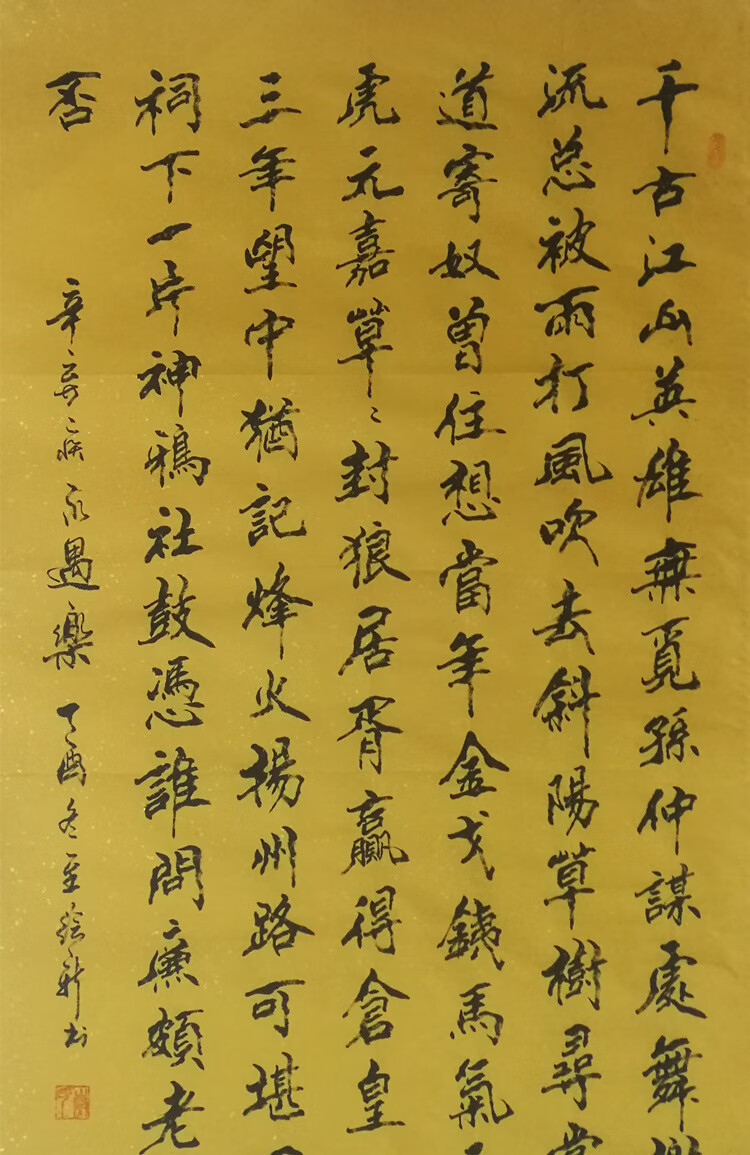 千古江山英雄無覓孫仲謀處舞
流总被雨打風吹去斜陽草樹尋
道寄奴曾住想當年金戈銕馬氣
虎元嘉草々封狼居胥贏得倉皇
三年望中猶記烽火揚州路可堪
祠下一片神鴉社鼓憑誰問廉頗老
否
辛弃疾永遇樂 丁酉冬至 新书